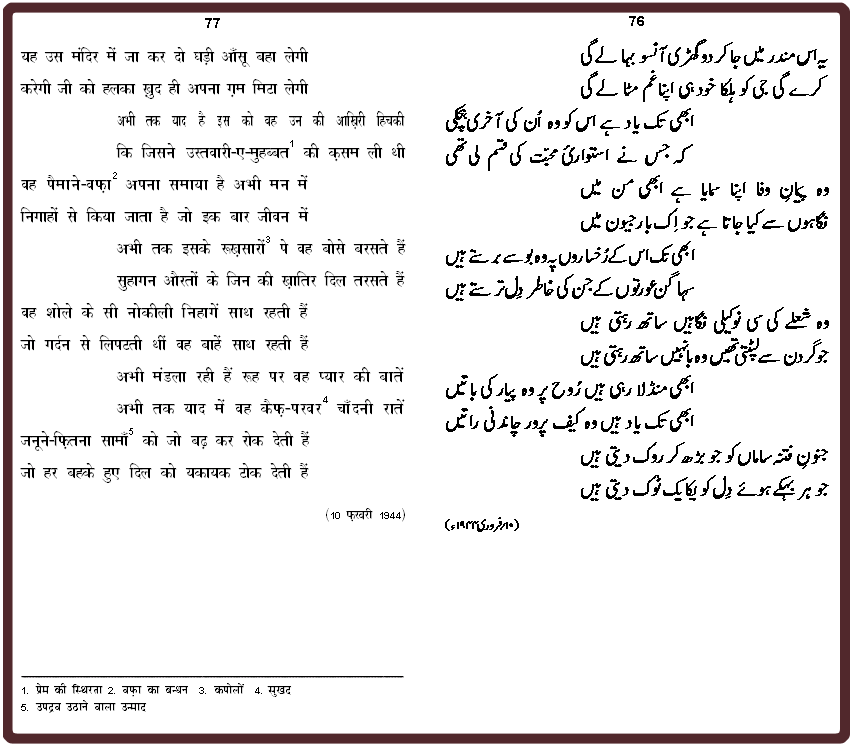 77
यह उस मंदिर में जा कर दो घड़ी आँसू बहा लेगी
करेगी जी को हलका ख़ुद ही अपना ग़म मिटा लेगी
अभी तक याद है इस को वह उन की आख़िरी हिचकी
कि जिसने उस्तवारी-ए-मुहब्बत1 की क़सम ली थी
वह पैमाने-वफ़ा2 अपना समाया है अभी मन में
निगाहों से किया जाता है जो इक बार जीवन में
अभी तक इसके रूख़सारों3 पे वह बोसे बरसते हैं
सुहागन औरतों के जिन की ख़ातिर दिल तरसते हैं
वह शोले के सी नोकीली निहागें साथ रहती हैं
जो गर्दन से लिपटती थीं वह बाहें साथ रहती हैं
अभी मंडला रही हैं रूह पर वह प्यार की बातें
अभी तक याद में वह कैफ़-परवर4 चाँदनी रातें
जनूने-फ़ितना सामाँ5 को जो बढ़ कर रोक देती हैं
जो हर बहके हुए दिल को यकायक टोक देती हैं
(10 फ़रवरी 1944)
1. प्रेम की स्थिरता 2. वफ़ा का बन्धन 3. कपोलों 4. सुखद
5. उपद्रव उठाने वाला उन्माद
76
یہ اس مندر میں جا کر دو گھڑی آنسو بہا لے گی
کرے گی جی کو ہلکا خود ہی اپنا غم مٹا لے گی
ابھی تک یاد ہے اس کو وہ اُن کی آخری ہچکی
کہ جس نے استواریٔ محبّت کی قسم لی تھی
وہ پیمانِ وفا اپنا سمایا ہے ابھی من میں
نگاہوں سے کیا جاتا ہے جو اِک بار جیون میں
ابھی تک اس کے رُخساروں پہ وہ بوسے برستے ہیں
سہاگن عورتوں کے جن کی خاطر دِل ترستے ہیں
وہ شعلے کی سی نوکیلی نگاہیں ساتھ رہتی ہیں
جو گردن سے لپٹتی تھیں وہ بانہیں ساتھ رہتی ہیں
ابھی منڈلا رہی ہیں رُوح پر وہ پیار کی باتیں
ابھی تک یاد ہیں وہ کیف پرور چاندنی راتیں
جنونِ فتنہ ساماں کو جو بڑھ کر روک دیتی ہیں
جو ہر بہکے ہوئے دِل کو یکایک ٹوک دیتی ہیں
(۱۰؍فروری ۱۹۴۴ء)